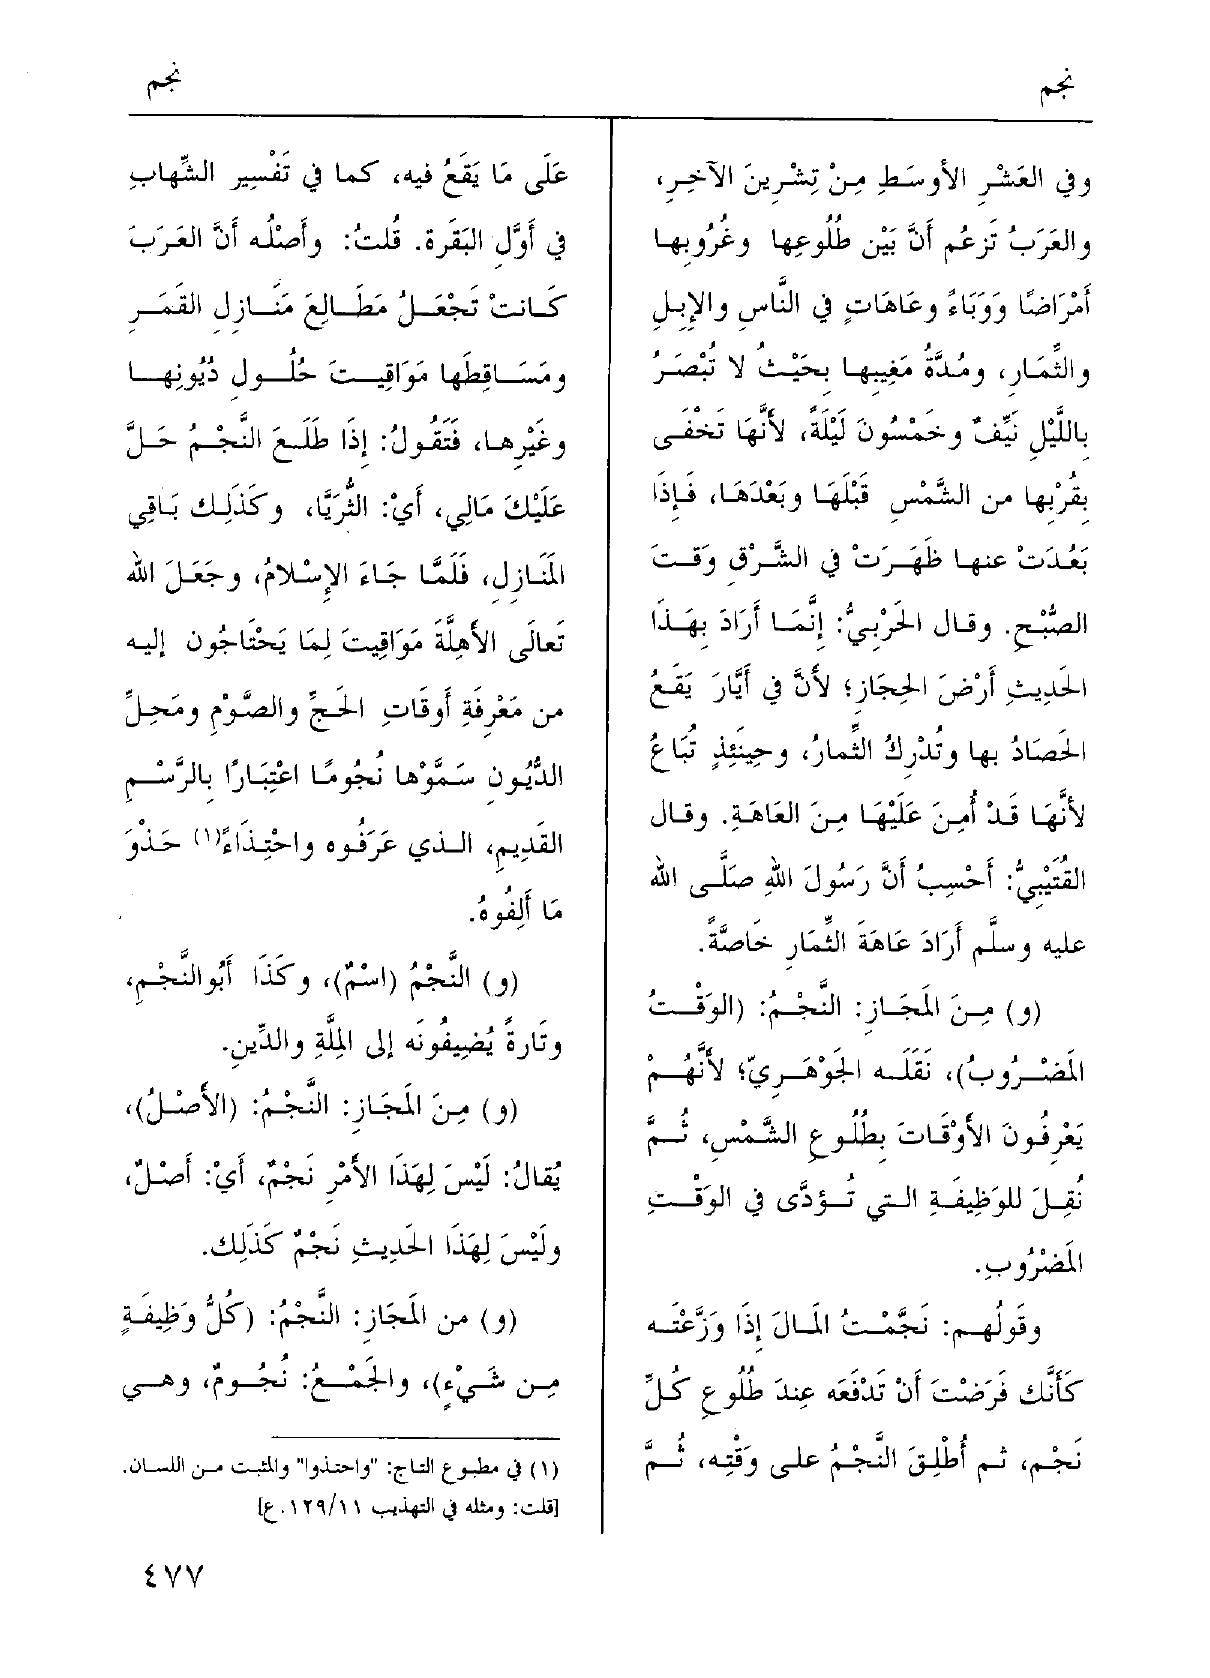 نجم
نجم
وفي العَشْرِ الأَوسَطِ مِنْ تِشْرِينَ الآخِرِ،
والعَرَبُ تَزعُم أَنَّ بَيْن طُلُوعِها وغُرُوبِها
أَمْرَاضًا وَوَبَاءً وعَاهَاتٍ في النَّاسِ والإِبِلِ
والثِّمَارِ، ومُدَّةُ مَغِيبِها بِحَيْثُ لا تُبْصَرُ
بِاللَّيْلِ نَيِّفٌ وخَمْسُونَ لَيْلَةً، لأَنَّها تَخفَى
بِقُرْبِها من الشَّمْسِ قَبْلَهَا وبَعْدَهَا، فَإِذَا
بَعُدَتْ عنها ظَهَرَتْ في الشَّرْقِ وَقْتَ
الصُّبْحِ. وقال الحَرْبِيُّ: إِنَّمَا أَرَادَ بِهَذَا
الحَدِيثِ أَرْضَ الحِجَازِ؛ لأَنَّ في أَيَّارَ يَقَعُ
الحَصَادُ بِها وتُدْرِكُ الثِّمارُ، وحِينَئِذٍ تُبَاعُ
لأَنَّهَا قَدْ أُمِنَ عَلَيْهَا مِنَ العَاهَةِ. وقال
القُتَيْبِيُّ: أَحْسِبُ أَنَّ رَسُولَ اللهِ صَلَّى الله
عليه وسلَّم أَرَادَ عَاهَةَ الثِّمَارِ خَاصَّةً.
(و) مِنَ المَجَازِ: النَّجْمُ: (الوَقْتُ
المَضْرُوبُ)، نَقَلَه الجَوْهَرِيّ؛ لأَنَّهُمْ
يَعْرِفُونَ الأَوْقَاتَ بِطُلُوعِ الشَّمْسِ، ثُمَّ
نُقِلَ للوَظِيفَةِ التي تُؤدَّى في الوَقْتِ
المَضْرُوبِ.
وقَولُهم: نَجَّمْتُ المَالَ إِذَا وَزَّعْتَه
كَأَنَّك فَرَضْتَ أَنْ تَدْفَعَه عِندَ طُلُوعِ كُلِّ
نَجْمٍ، ثم أُطْلِقَ النَّجْمُ على وَقْتِه، ثُمَّ
عَلَى مَا يَقَعُ فيه، كما في تَفْسِيرِ الشِّهابِ
في أَوَّلِ البَقَرة. قُلتُ: وأَصْلُه أَنَّ العَرَبَ
كَانتْ تَجْعَلُ مَطَالِعَ مَنَازِلِ القَمَرِ
ومَسَاقِطَها مَوَاقِيتَ حُلُولِ دُيُونِها
وغَيْرِها، فَتَقُولُ: إِذَا طَلَعَ النَّجْمُ حَلَّ
عَلَيْكَ مَالِي، أَيْ: الثُّرَيَّا، وكَذَلِك بَاقِي
المَنَازِلِ، فَلَمَّا جَاءَ الإِسْلامُ، وجَعَلَ الله
تَعالَى الأَهِلَّةَ مَوَاقِيتَ لِمَا يَحْتَاجُون إليه
من مَعْرِفَةِ أَوقَاتِ الحَجِّ والصَّوْمِ ومَحِلِّ
الدُّيُون سَمَّوْها نُجُومًا اعْتِبَارًا بالرَّسْمِ
القَدِيمِ، الذي عَرَفُوه واحْتِذَاءً(١) حَذْوَ
مَا أَلِفُوهُ.
(و) النَّجْمُ (اسْمٌ)، وكَذَا أَبُوالنَّجْمِ،
وتَارَةً يُضِيفُونَه إلى المِلَّةِ والدِّينِ.
(و) مِنَ المَجَازِ: النَّجْمُ: (الأَصْلُ)،
يُقالُ: لَيْسَ لِهَذَا الأَمْرِ نَجْمٌ، أَيْ: أَصْلٌ،
ولَيْسَ لِهَذَا الحَدِيثِ نَجْمٌ كَذَلِك.
(و) من المَجَازِ: النَّجْمُ: (كُلُّ وَظِيفَةٍ
مِن شَيْءٍ)، والجَمْعُ: نُجُومٌ، وهي
(١) في مطبوع التاج: "واحتذوا" والمثبت من اللسان.
[قلت: ومثله في التهذيب ١٢٩/١١. ع]
٤٧٧